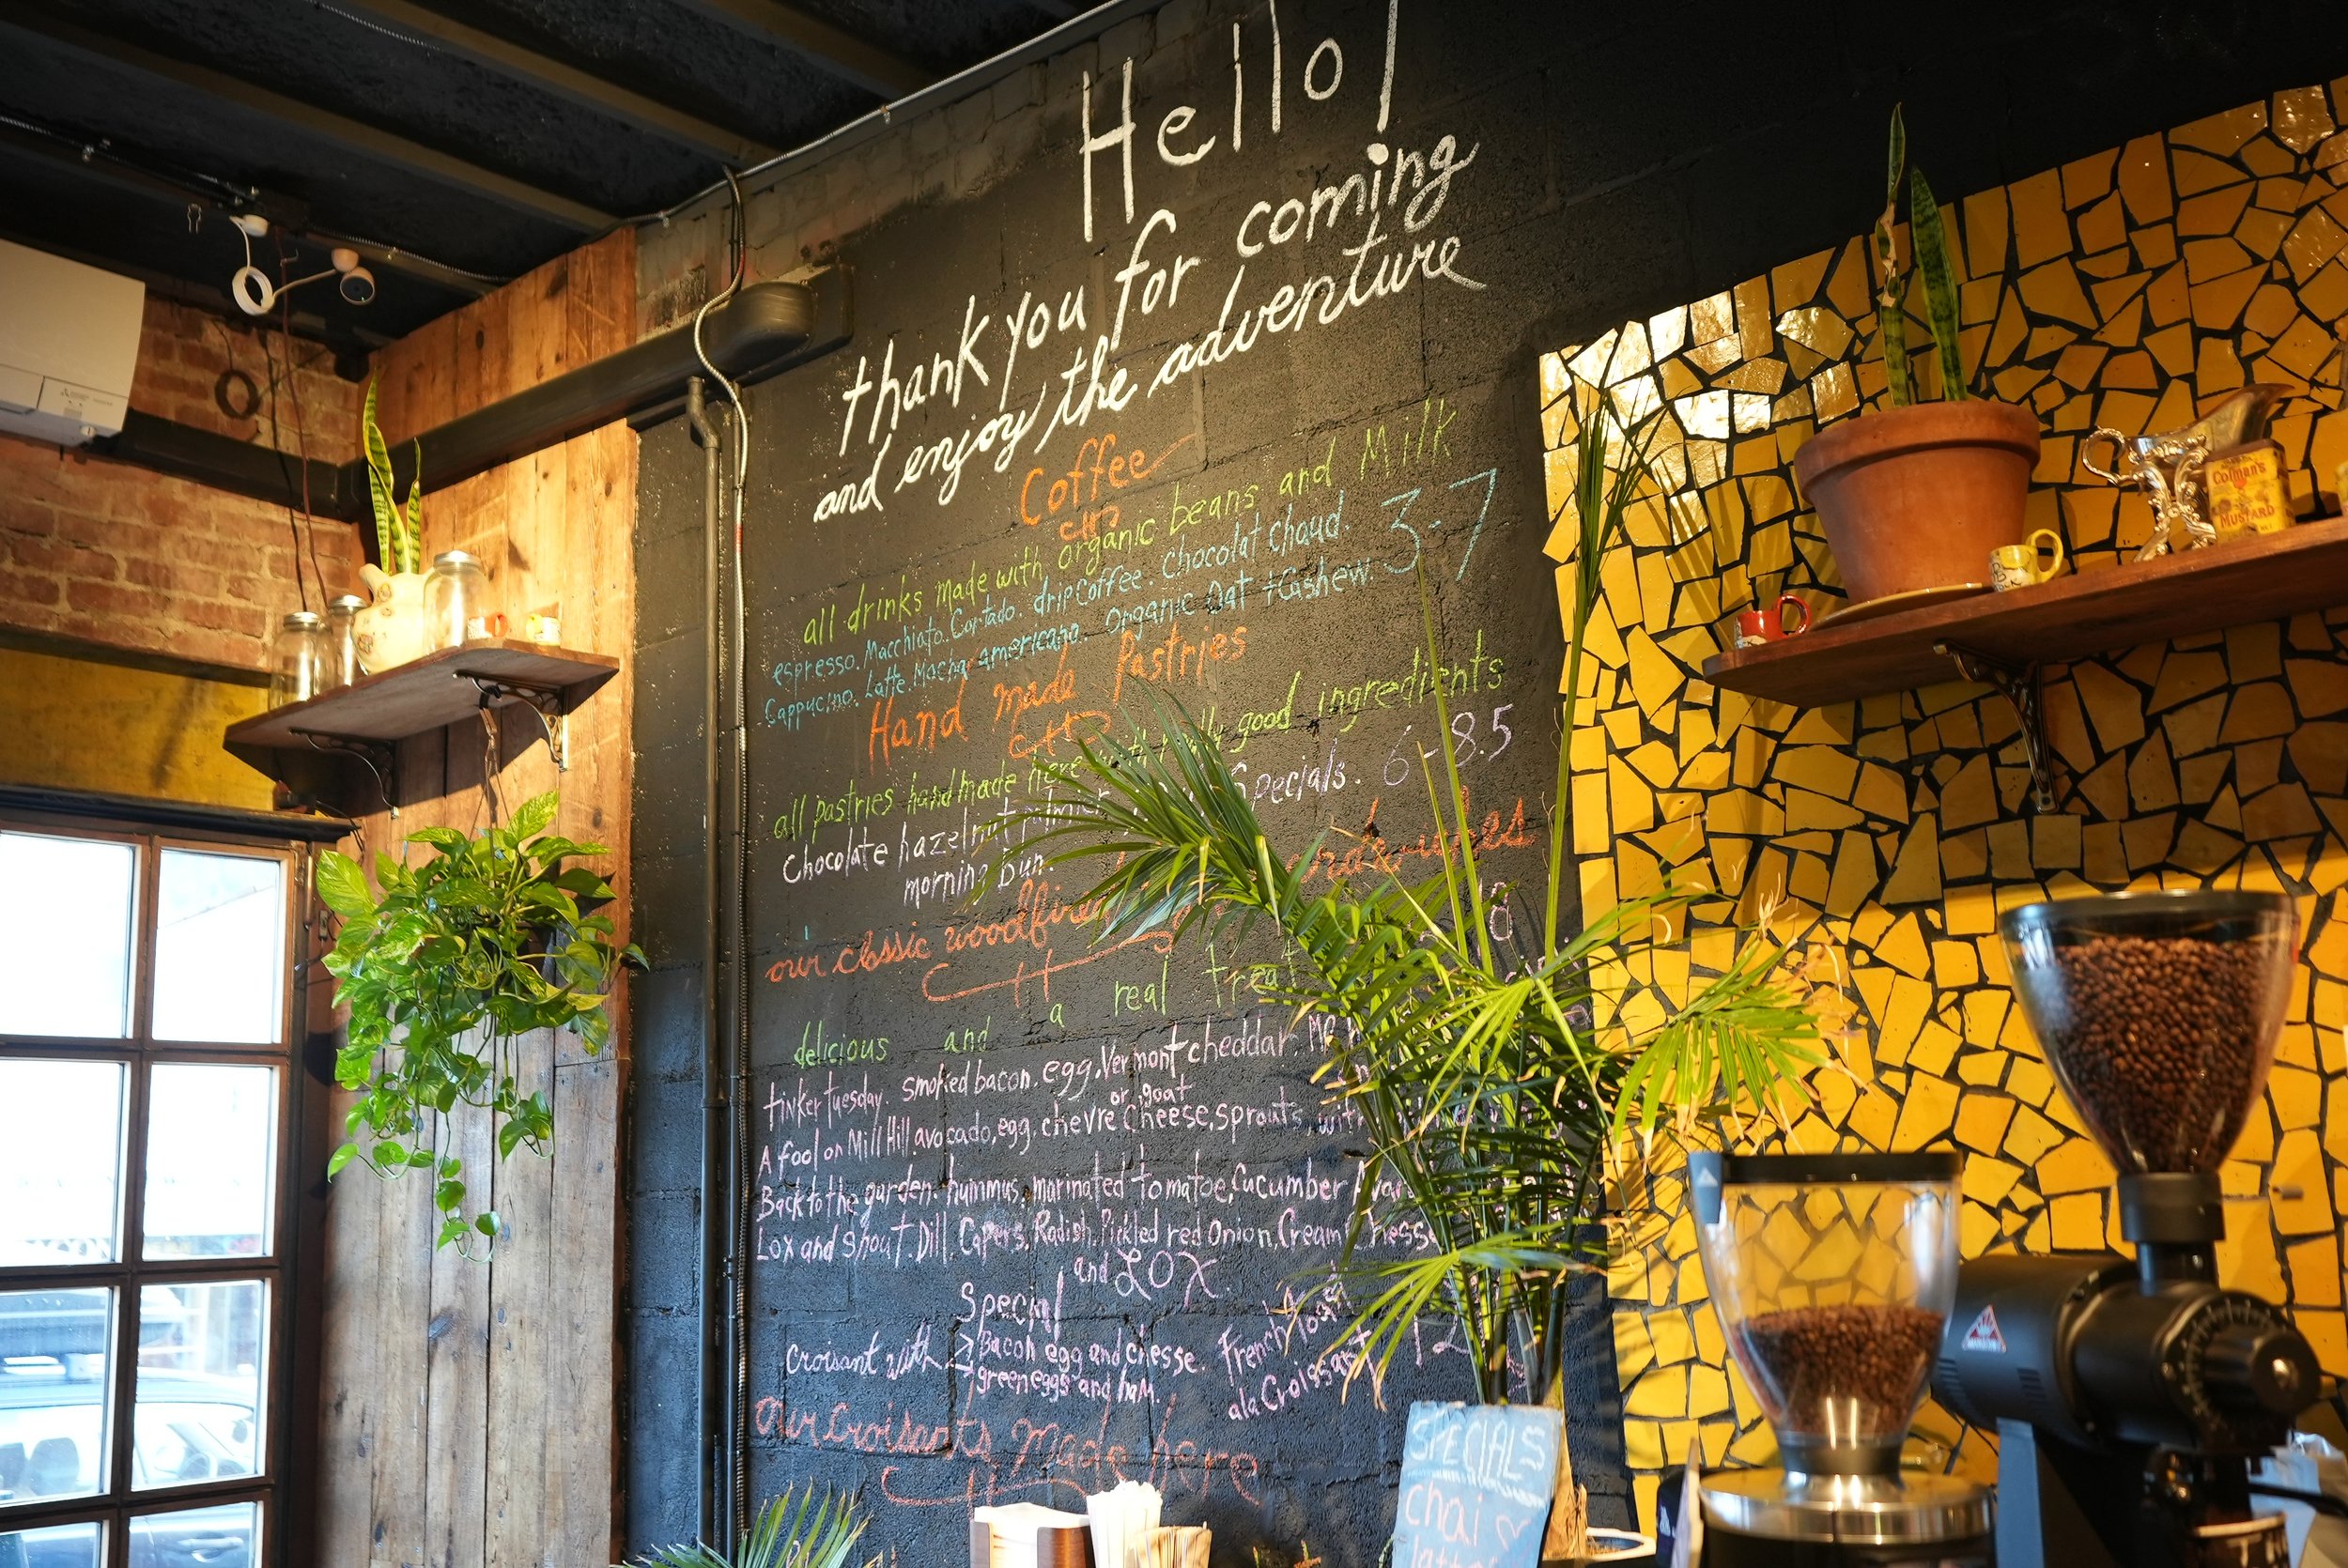 Hello!
thank you for coming
and enjoy the adventure
Coffee
all drinks made with organic beans and Milk
espresso. Macchiato. Cortado. drip Coffee. Chocolat chaud.
Cappucino. Latte. Mocha. americano. Organic Oat + Cashew. 3-7
Hand made Pastries
all pastries handmade here with really good ingredients
Chocolate hazelnut Specials. 6-8.5
morning bun.
our classic woodfired
delicious and a real treat
tinker tuesday. smoked bacon. egg. Vermont cheddar.
or goat
A fool on Mill Hill. avocado, egg, chevre Cheese, sprouts, with
Back to the garden. hummus, marinated tomatoe, Cucumber
Lox and Shout. Dill, Capers, Radish, Pickled red Onion, Cream Cheese
and LOX.
Special
Croisant with > Bacon egg and cheese.
> green eggs and haM.
French Toast
ala Croissant 12
our croisants Made here
SPECIALS
chai
latte
Colman's
MUSTARD